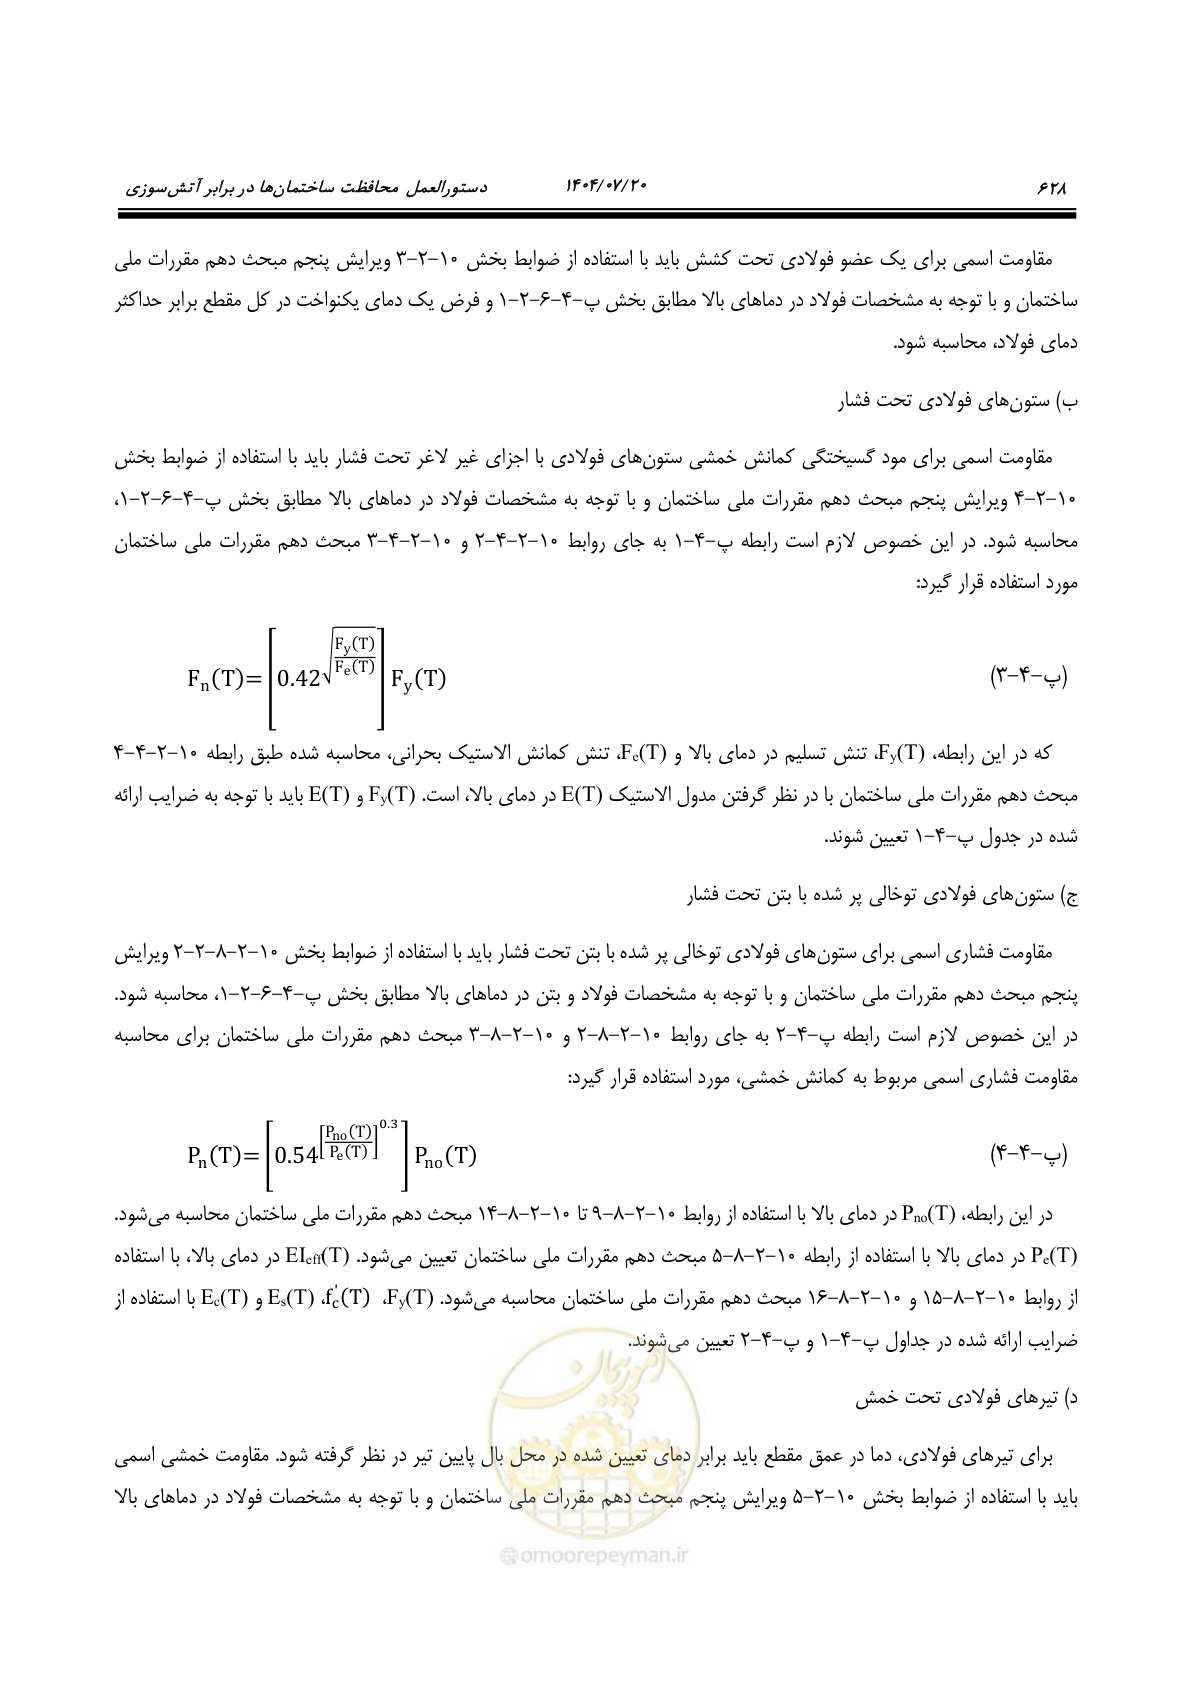 ۶۲۸ ۱۴۰۴/۰۷/۲۰ دستورالعمل محافظت ساختمان‌ها در برابر آتش‌سوزی
مقاومت اسمی برای یک عضو فولادی تحت کشش باید با استفاده از ضوابط بخش ۱۰-۲-۳ ویرایش پنجم مبحث دهم مقررات ملی
ساختمان و با توجه به مشخصات فولاد در دماهای بالا مطابق بخش پ-۴-۶-۲-۱ و فرض یک دمای یکنواخت در کل مقطع برابر حداکثر
دمای فولاد، محاسبه شود.
ب) ستون‌های فولادی تحت فشار
مقاومت اسمی برای مود گسیختگی کمانش خمشی ستون‌های فولادی با اجزای غیر لاغر تحت فشار باید با استفاده از ضوابط بخش
۱۰-۲-۴ ویرایش پنجم مبحث دهم مقررات ملی ساختمان و با توجه به مشخصات فولاد در دماهای بالا مطابق بخش پ-۴-۶-۲-۱،
محاسبه شود. در این خصوص لازم است رابطه پ-۴-۱ به جای روابط ۱۰-۲-۴-۲ و ۱۰-۲-۴-۳ مبحث دهم مقررات ملی ساختمان
مورد استفاده قرار گیرد:
(پ-۴-۳) Fn(T)= [0.42^√(Fy(T)/Fe(T))] Fy(T)
که در این رابطه، Fy(T)، تنش تسلیم در دمای بالا و Fe(T)، تنش کمانش الاستیک بحرانی، محاسبه شده طبق رابطه ۱۰-۲-۴-۴
مبحث دهم مقررات ملی ساختمان با در نظر گرفتن مدول الاستیک E(T) در دمای بالا، است. Fy(T) و E(T) باید با توجه به ضرایب ارائه
شده در جدول پ-۴-۱ تعیین شوند.
ج) ستون‌های فولادی توخالی پر شده با بتن تحت فشار
مقاومت فشاری اسمی برای ستون‌های فولادی توخالی پر شده با بتن تحت فشار باید با استفاده از ضوابط بخش ۱۰-۲-۸-۲-۲ ویرایش
پنجم مبحث دهم مقررات ملی ساختمان و با توجه به مشخصات فولاد و بتن در دماهای بالا مطابق بخش پ-۴-۶-۲-۱، محاسبه شود.
در این خصوص لازم است رابطه پ-۴-۲ به جای روابط ۱۰-۲-۸-۲ و ۱۰-۲-۸-۳ مبحث دهم مقررات ملی ساختمان برای محاسبه
مقاومت فشاری اسمی مربوط به کمانش خمشی، مورد استفاده قرار گیرد:
(پ-۴-۴) Pn(T)= [0.54^[Pno(T)/Pe(T)]^0.3] Pno(T)
در این رابطه، Pno(T) در دمای بالا با استفاده از روابط ۱۰-۲-۸-۹ تا ۱۰-۲-۸-۱۴ مبحث دهم مقررات ملی ساختمان محاسبه می‌شود.
Pe(T) در دمای بالا با استفاده از رابطه ۱۰-۲-۸-۵ مبحث دهم مقررات ملی ساختمان تعیین می‌شود. EIeff(T) در دمای بالا، با استفاده
از روابط ۱۰-۲-۸-۱۵ و ۱۰-۲-۸-۱۶ مبحث دهم مقررات ملی ساختمان محاسبه می‌شود. Fy(T)، f'c(T)، Es(T) و Ec(T) با استفاده از
ضرایب ارائه شده در جداول پ-۴-۱ و پ-۴-۲ تعیین می‌شوند.
د) تیرهای فولادی تحت خمش
برای تیرهای فولادی، دما در عمق مقطع باید برابر دمای تعیین شده در محل بال پایین تیر در نظر گرفته شود. مقاومت خمشی اسمی
باید با استفاده از ضوابط بخش ۱۰-۲-۵ ویرایش پنجم مبحث دهم مقررات ملی ساختمان و با توجه به مشخصات فولاد در دماهای بالا
امور پیمان
@omoorepeyman.ir